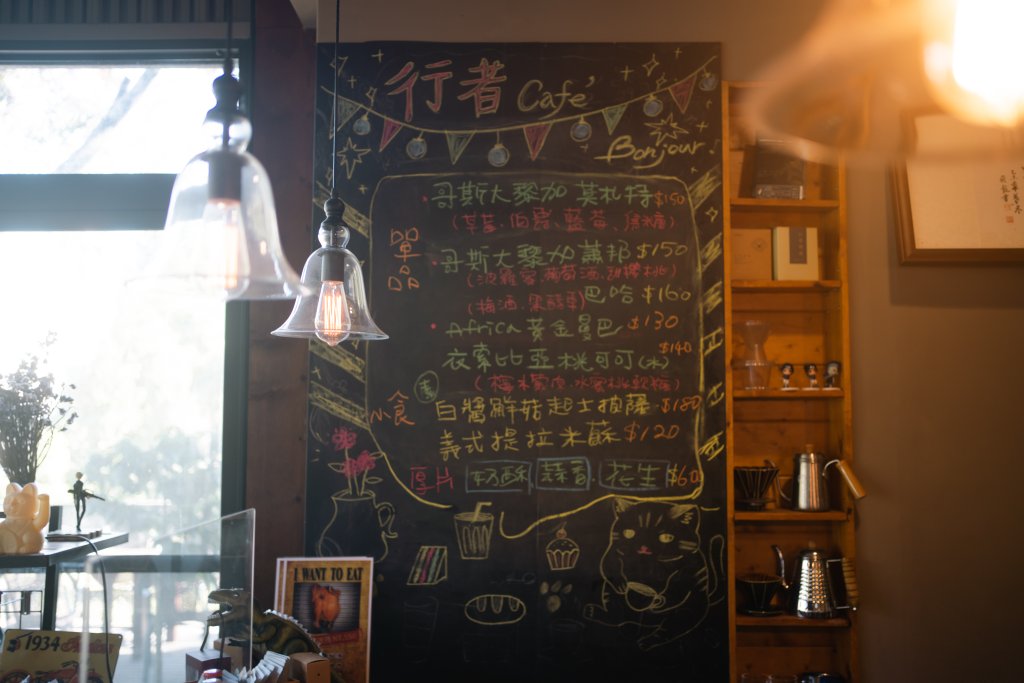 行者 Café
Bonjour!
哥斯大黎加 莫札特 $150
(草莓、伯爵、藍莓、黑糖)
單品
哥斯大黎加 蕭邦 $150
(波羅蜜、葡萄酒、甜櫻桃)
巴哈 $160
(梅酒、果醋)
Africa 黃金曼巴 $130
衣索比亞桃可可(水) $140
小食
白醬鮮菇起士披薩 $180
義式提拉米蘇 $120
厚片 奶酥 蒜香 花生 $60
I WANT TO EAT
1934